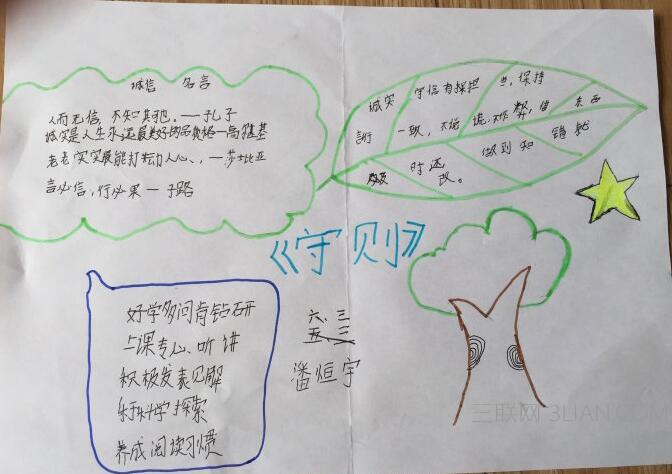 诚信 名言
人而无信,不知其可也。——孔子
诚实是人生永远最美好的品质 — 高尔基
老老实实最能打动人心、—莎士比亚
言必信,行必果 — 子路
诚实 守信有保担 当,保持
言行 一致,不说 谎,不作弊,借 东西
时还 做到知 错就
改。
《守则》
好学多问肯钻研
上课专心、听讲
积极发表见解
乐于科学探索
养成阅读习惯
六、三
五 三
潘烜宇
三联网 3LIAN.COM